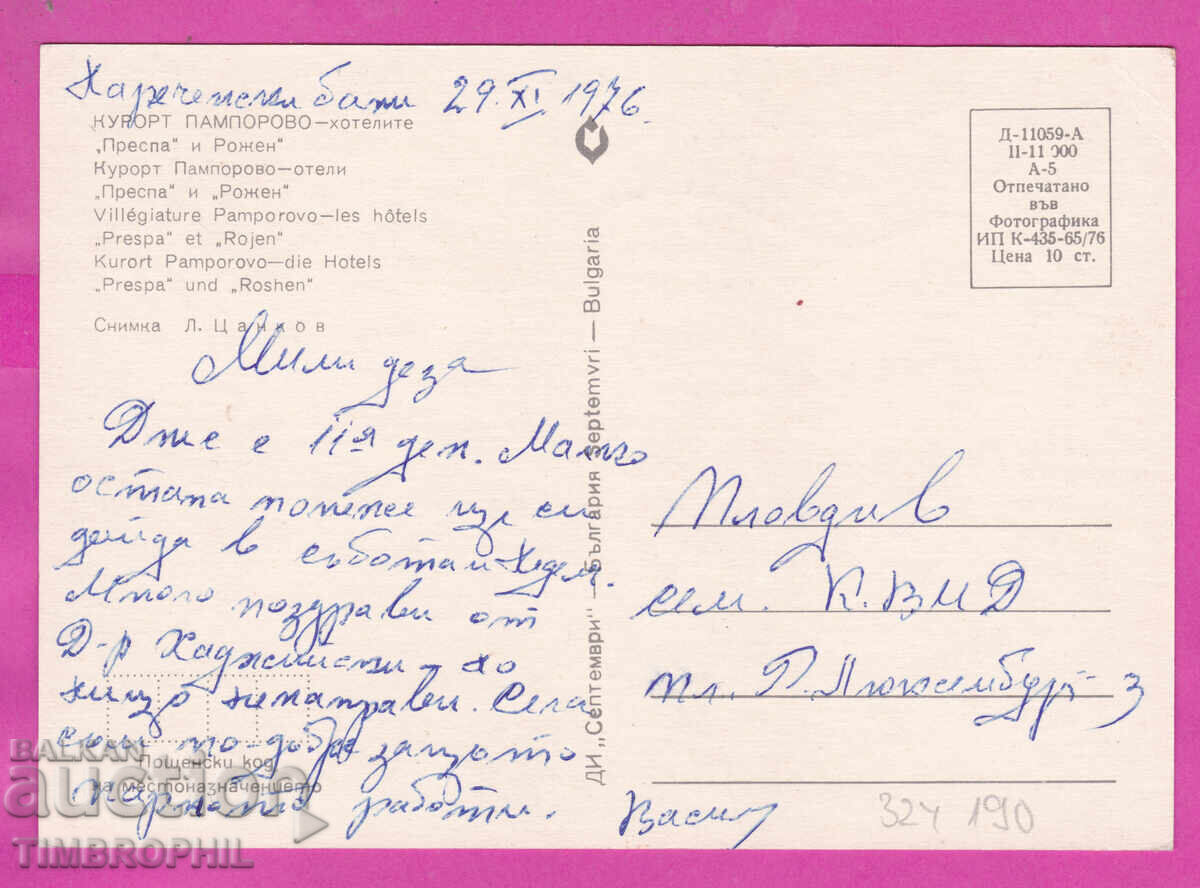 Нареченски бани 29.XI 1976.
КУРОРТ ПАМПОРОВО—хотелите
„Преспа" и Рожен"
Курорт Пампорово—отели
„Преспа" и „Рожен"
Villégiature Pamporovo—les hôtels
„Prespa" et „Rojen"
Kurort Pamporovo—die Hotels
„Prespa" und „Roshen"
Снимка Л. Цанков
Мили деца
Дже е 11я ден. Малко
остана понеже ще си
дойда в събота и недел.
Много поздрави от
Д-р Хаджийски - но
нищо ненаправи. Сега
съм по-добре защото
парното работи. Васил
Пощенски код
на местоназначението
ДИ „Септември" —България Septemvri — Bulgaria
Д-11059-А
II-11 000
А-5
Отпечатано
във
Фотографика
ИП К-435-65/76
Цена 10 ст.
Пловдив
сем.
пл. Р. Люксембург 3
324 190
BALKAN
auction
TIMBROPHIL